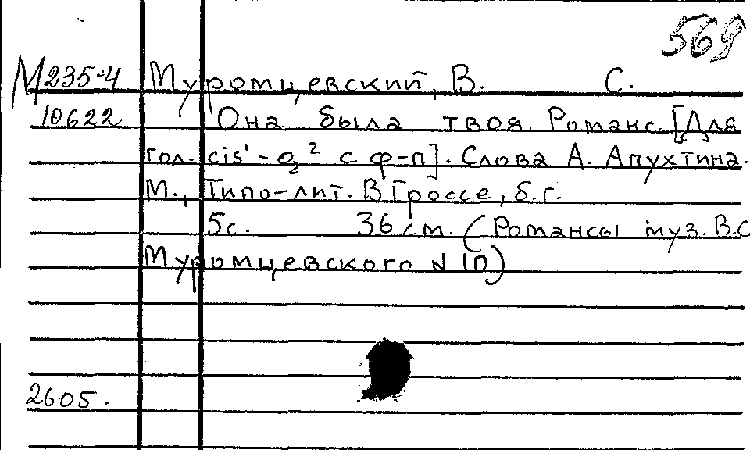 569
М 235-4 Муромцевский, В. С.
10622 Она была твоя. Романс. [Для
гол. cis'-g² с ф-п]. Слова А. Апухтина.
М., Типо-лит. В. Гроссе, б.г.
5с. 36 см. (Романсы муз. В.С
Муромцевского N 10)
2605.